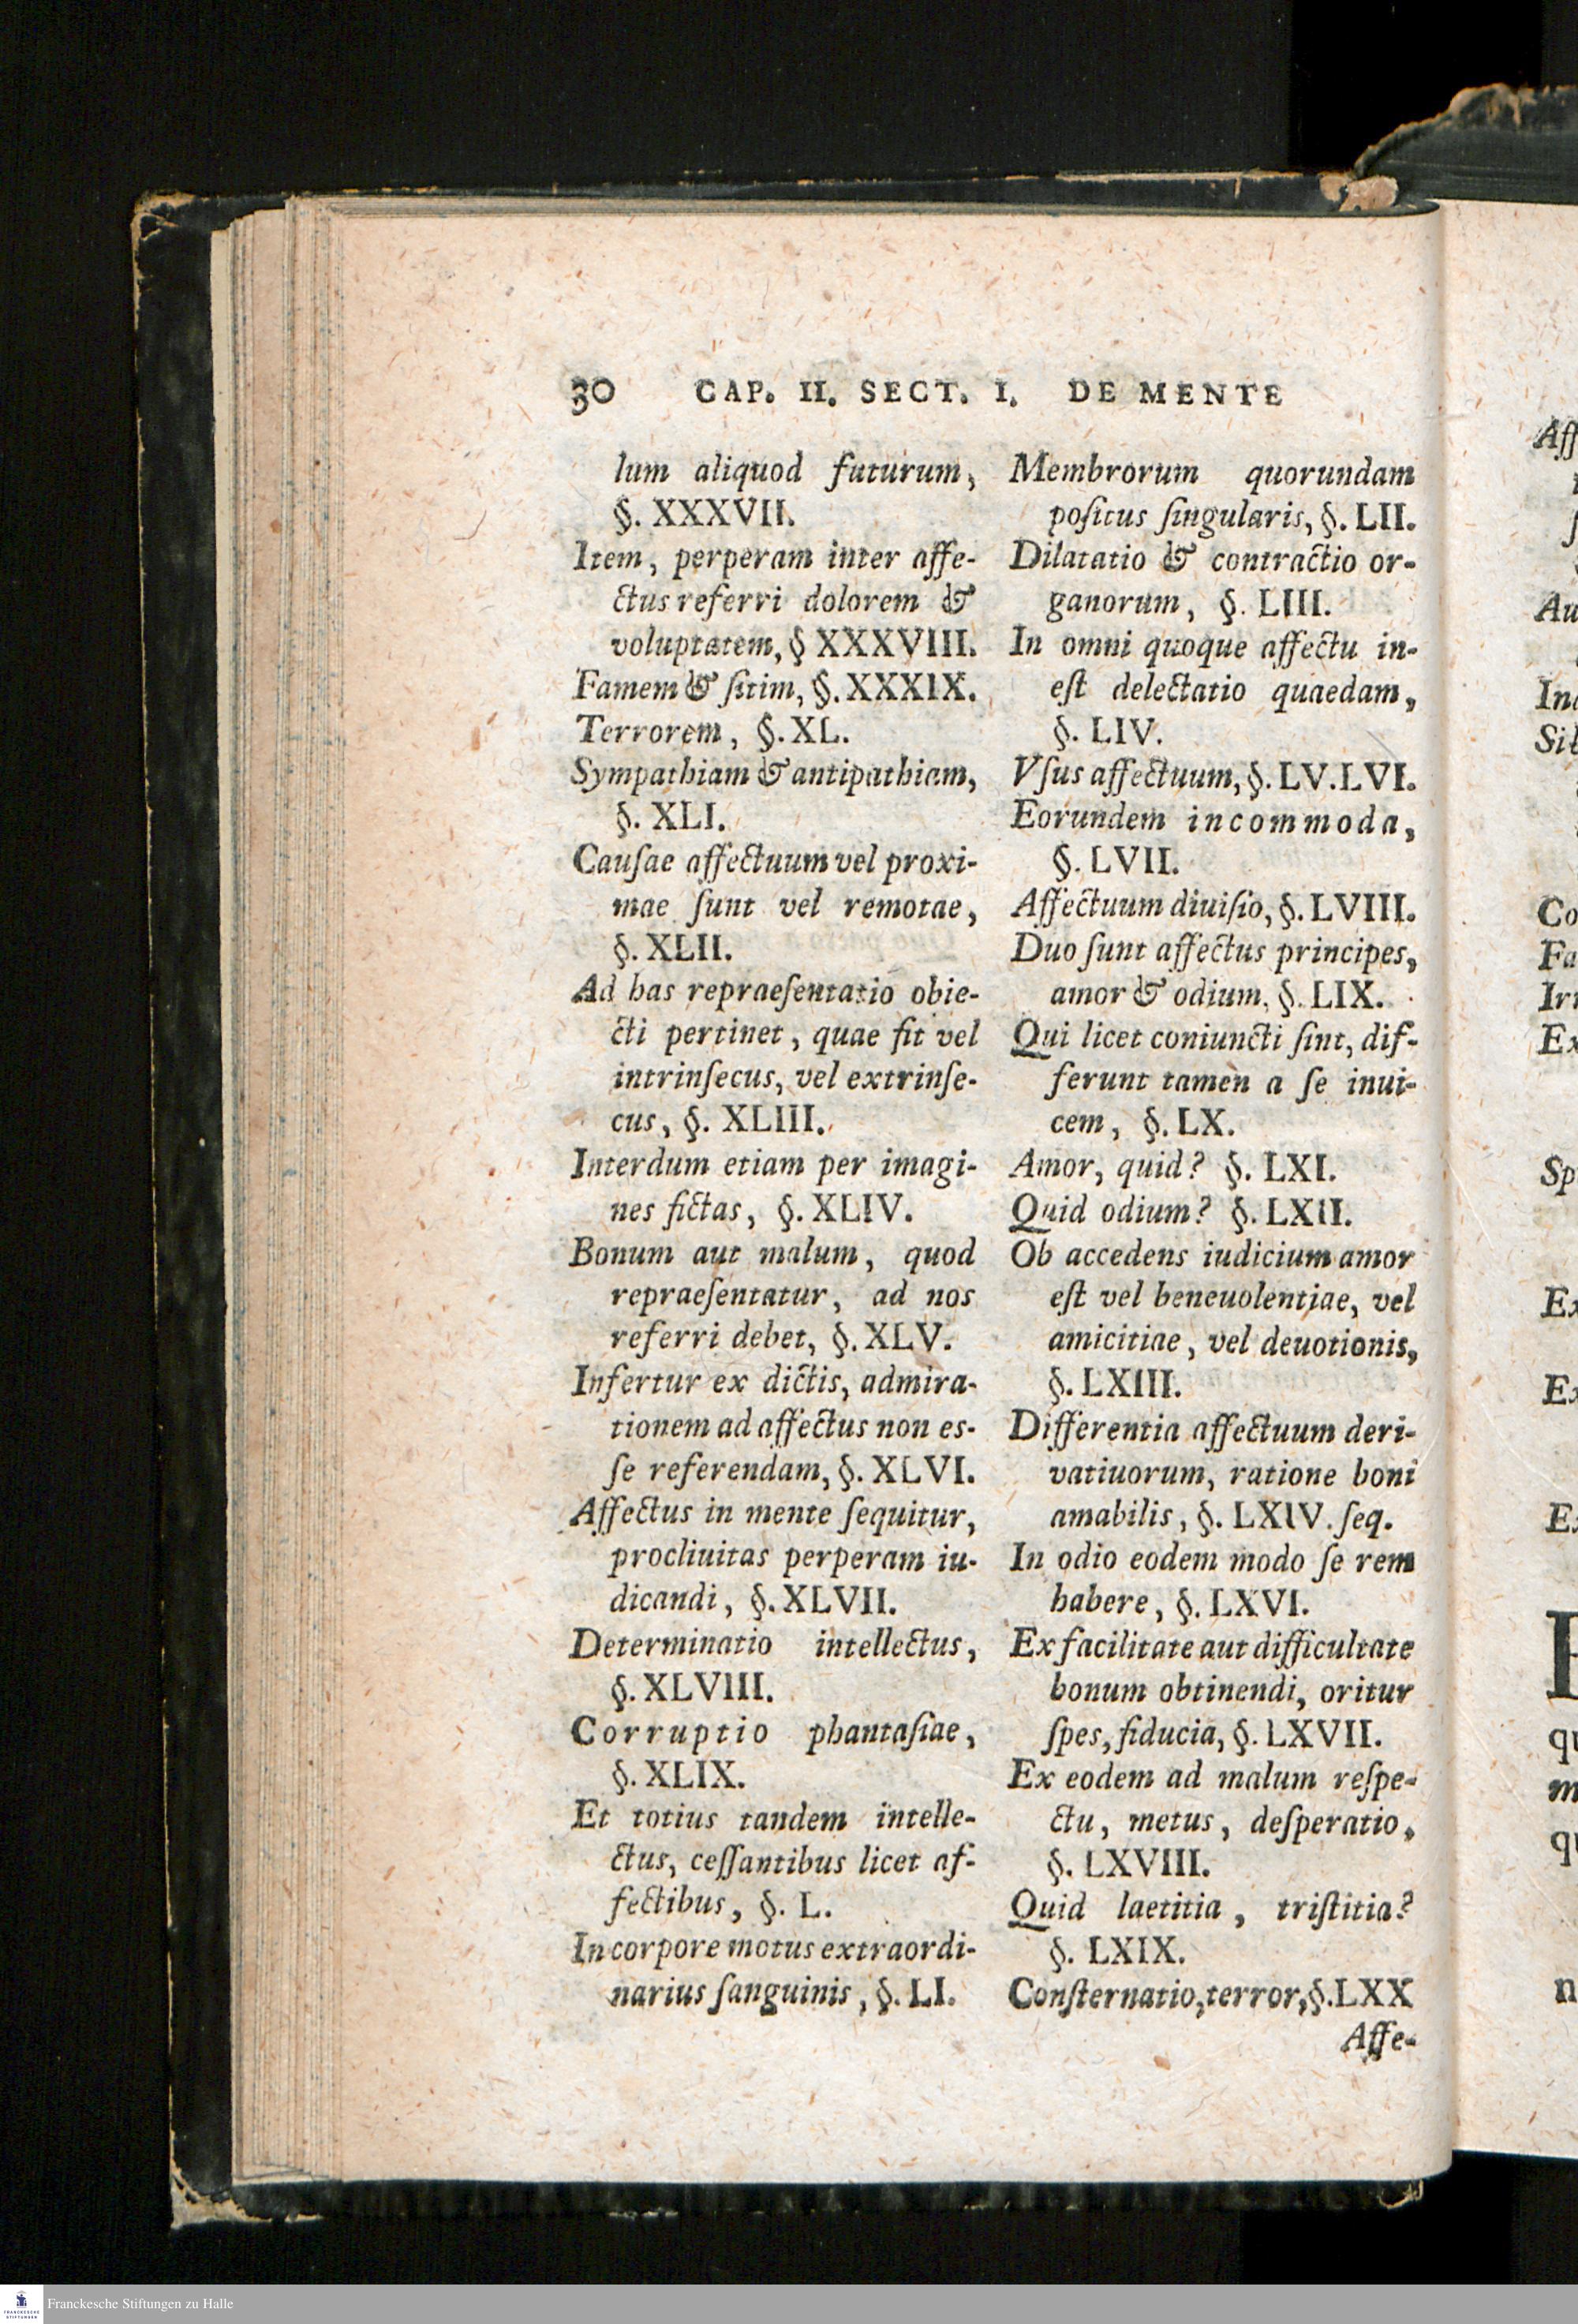 30 CAP. II. SECT. I. DE MENTE
lum aliquod futurum,
§. XXXVII.
Item, perperam inter affe-
ctus referri dolorem &
voluptatem, § XXXVIII.
Famem & ſitim, §. XXXIX.
Terrorem, §. XL.
Sympathiam & antipathiam,
§. XLI.
Cauſae affectuum vel proxi-
mae ſunt vel remotae,
§. XLII.
Ad has repraeſentatio obie-
cti pertinet, quae fit vel
intrinſecus, vel extrinſe-
cus, §. XLIII.
Interdum etiam per imagi-
nes fictas, §. XLIV.
Bonum aut malum, quod
repraeſentatur, ad nos
referri debet, §. XLV.
Infertur ex dictis, admira-
tionem ad affectus non es-
ſe referendam, §. XLVI.
Affectus in mente ſequitur,
procliuitas perperam iu-
dicandi, §. XLVII.
Determinatio intellectus,
§. XLVIII.
Corruptio phantaſiae,
§. XLIX.
Et totius tandem intelle-
ctus, ceſſantibus licet af-
fectibus, §. L.
In corpore motus extraordi-
narius ſanguinis, §. LI.
Membrorum quorundam
poſitus ſingularis, §. LII.
Dilatatio & contractio or-
ganorum, §. LIII.
In omni quoque affectu in-
eſt delectatio quaedam,
§. LIV.
Vſus affectuum, §. LV. LVI.
Eorundem incommoda,
§. LVII.
Affectuum diuiſio, §. LVIII.
Duo ſunt affectus principes,
amor & odium, §. LIX.
Qui licet coniuncti ſint, dif-
ferunt tamen a ſe inui-
cem, §. LX.
Amor, quid? §. LXI.
Quid odium? §. LXII.
Ob accedens iudicium amor
eſt vel beneuolentiae, vel
amicitiae, vel deuotionis,
§. LXIII.
Differentia affectuum deri-
vatiuorum, ratione boni
amabilis, §. LXIV. ſeq.
In odio eodem modo ſe rem
habere, §. LXVI.
Ex facilitate aut difficultate
bonum obtinendi, oritur
ſpes, fiducia, §. LXVII.
Ex eodem ad malum reſpe-
ctu, metus, deſperatio,
§. LXVIII.
Quid laetitia, triſtitia?
§. LXIX.
Conſternatio, terror, §. LXX
Affe-
Aff
Au
Co
Fa
Sp
Ex
Ex
qu
m
qu
n
Franckesche Stiftungen zu Halle